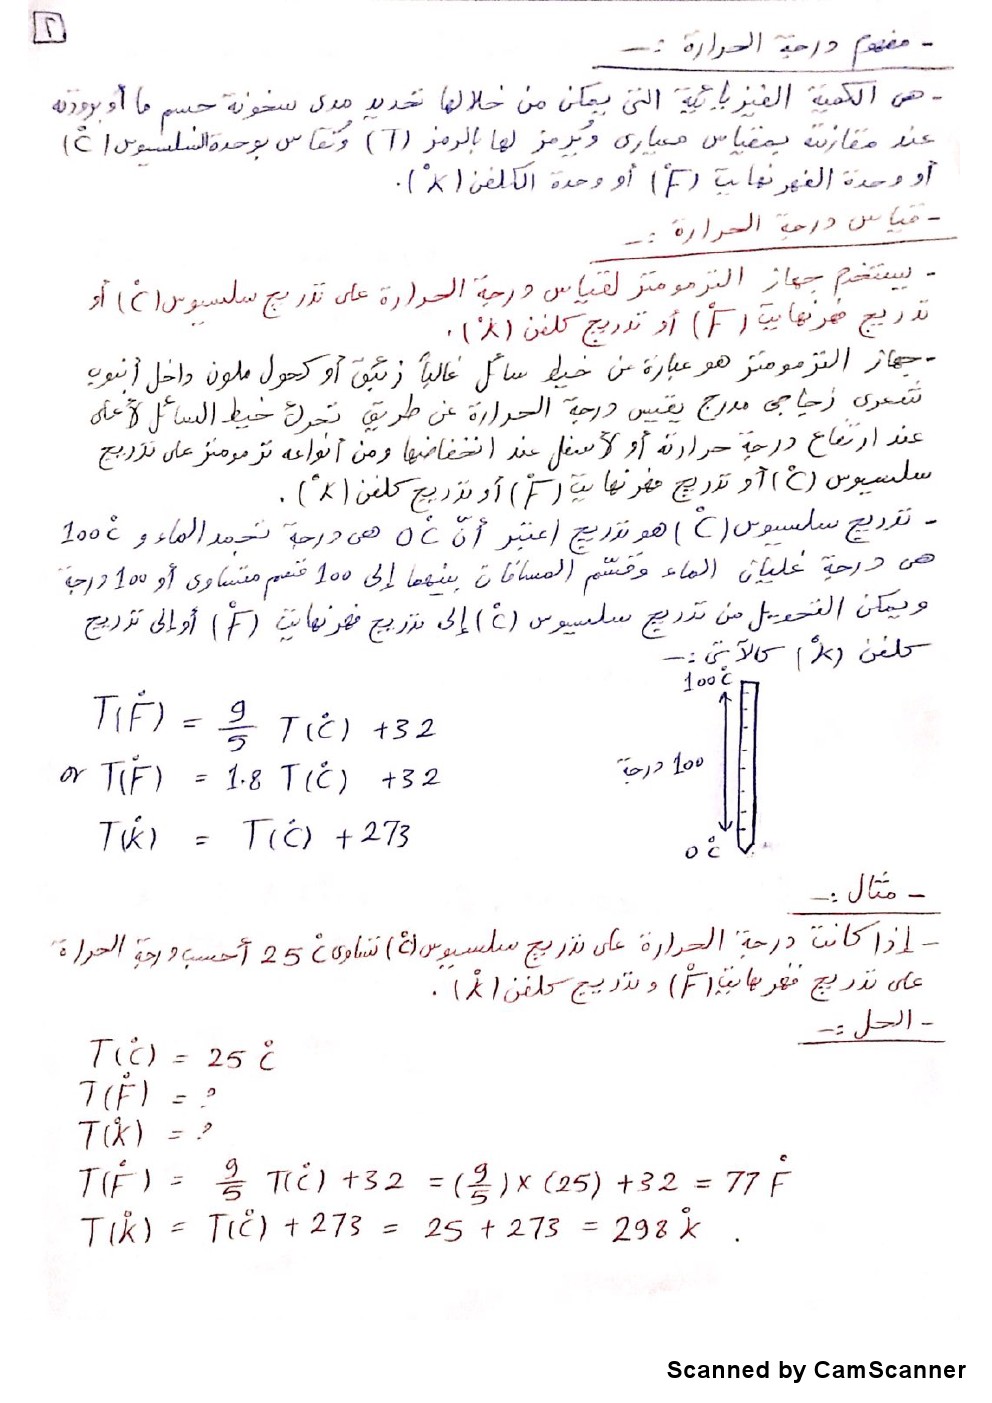 ٢
- مفهوم درجة الحرارة :-
- هى الكمية الفيزيائية التى يمكن من خلالها تحديد مدى سخونة جسم ما أو برودته
عند مقارنته بمقياس معيارى ويُرمز لها بالرمز (T) وتُقاس بوحدة السلسيوس (C°)
أو وحدة الفهرنهايت (F°) أو وحدة الكلفن (k°).
- قياس درجة الحرارة :-
- يستخدم جهاز الترمومتر لقياس درجة الحرارة على تدريج سلسيوس (C°) أو
تدريج فهرنهايت (F°) أو تدريج كلفن (k°).
- جهاز الترمومتر هو عبارة عن خيط سائل غالباً زئبق أو كحول ملون داخل أنبوب
شعرى زجاجى مدرج يقيس درجة الحرارة عن طريق تحرك خيط السائل لأعلى
عند ارتفاع درجة حرارته أو لأسفل عند انخفاضها ومن أنواعه ترمومتر على تدريج
سلسيوس (C°) أو تدريج فهرنهايت (F°) أو تدريج كلفن (k°).
- تدريج سلسيوس (C°) هو تدريج اعتبر أنّ 0C° هى درجة تجمد الماء و 100C°
هى درجة غليان الماء وقسّم المسافات بينهما إلى 100 قسم متساوى أو 100 درجة
ويمكن التحويل من تدريج سلسيوس (C°) إلى تدريج فهرنهايت (F°) أو إلى تدريج
كلفن (k°) كالآتى :-
100C°
T(F°) = 9/5 T(C°) +32
100 درجة
or T(F°) = 1.8 T(C°) +32
T(k°) = T(C°) + 273
0C°
- مثال :-
- إذا كانت درجة الحرارة على تدريج سلسيوس (C°) تساوى 25C° أحسب درجة الحرارة
على تدريج فهرنهايت (F°) وتدريج كلفن (k°).
- الحل :-
T(C°) = 25 C°
T(F°) = ?
T(k°) = ?
T(F°) = 9/5 T(C°) +32 = (9/5) × (25) +32 = 77 F°
T(k°) = T(C°) + 273 = 25 + 273 = 298 k° .
Scanned by CamScanner